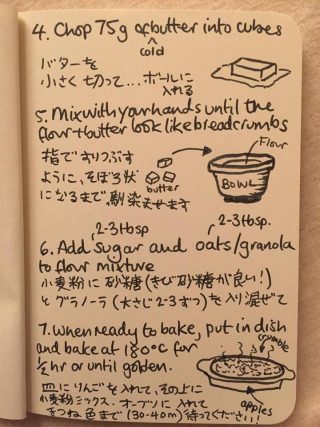 4. Chop 75g of butter into cubes
cold
バターを
小さく切って... ボールに
入れる
5. Mix with your hands until the
flour + butter look like breadcrumbs
指ですりつぶす
ように、そぼろ状
になるまで、馴染ませます
butter
Flour
BOWL
2-3 tbsp
2-3 tbsp.
6. Add sugar and oats/granola
to flour mixture
小麦粉に砂糖(きび砂糖が良い!)
とグラノーラ(大さじ2-3ずつ)を入り混ぜて
7. When ready to bake, put in dish
and bake at 180°C for
½ hr or until golden.
crumble
皿にりんごを入れて、その上に
小麦粉ミックス. オーブンに入れて
きつね色まで(30-40m)待ってください!
apples